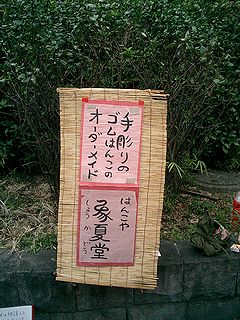 手彫りの
ゴムはんこの
オーダーメイド
はんこや
象夏堂
しょうかどう